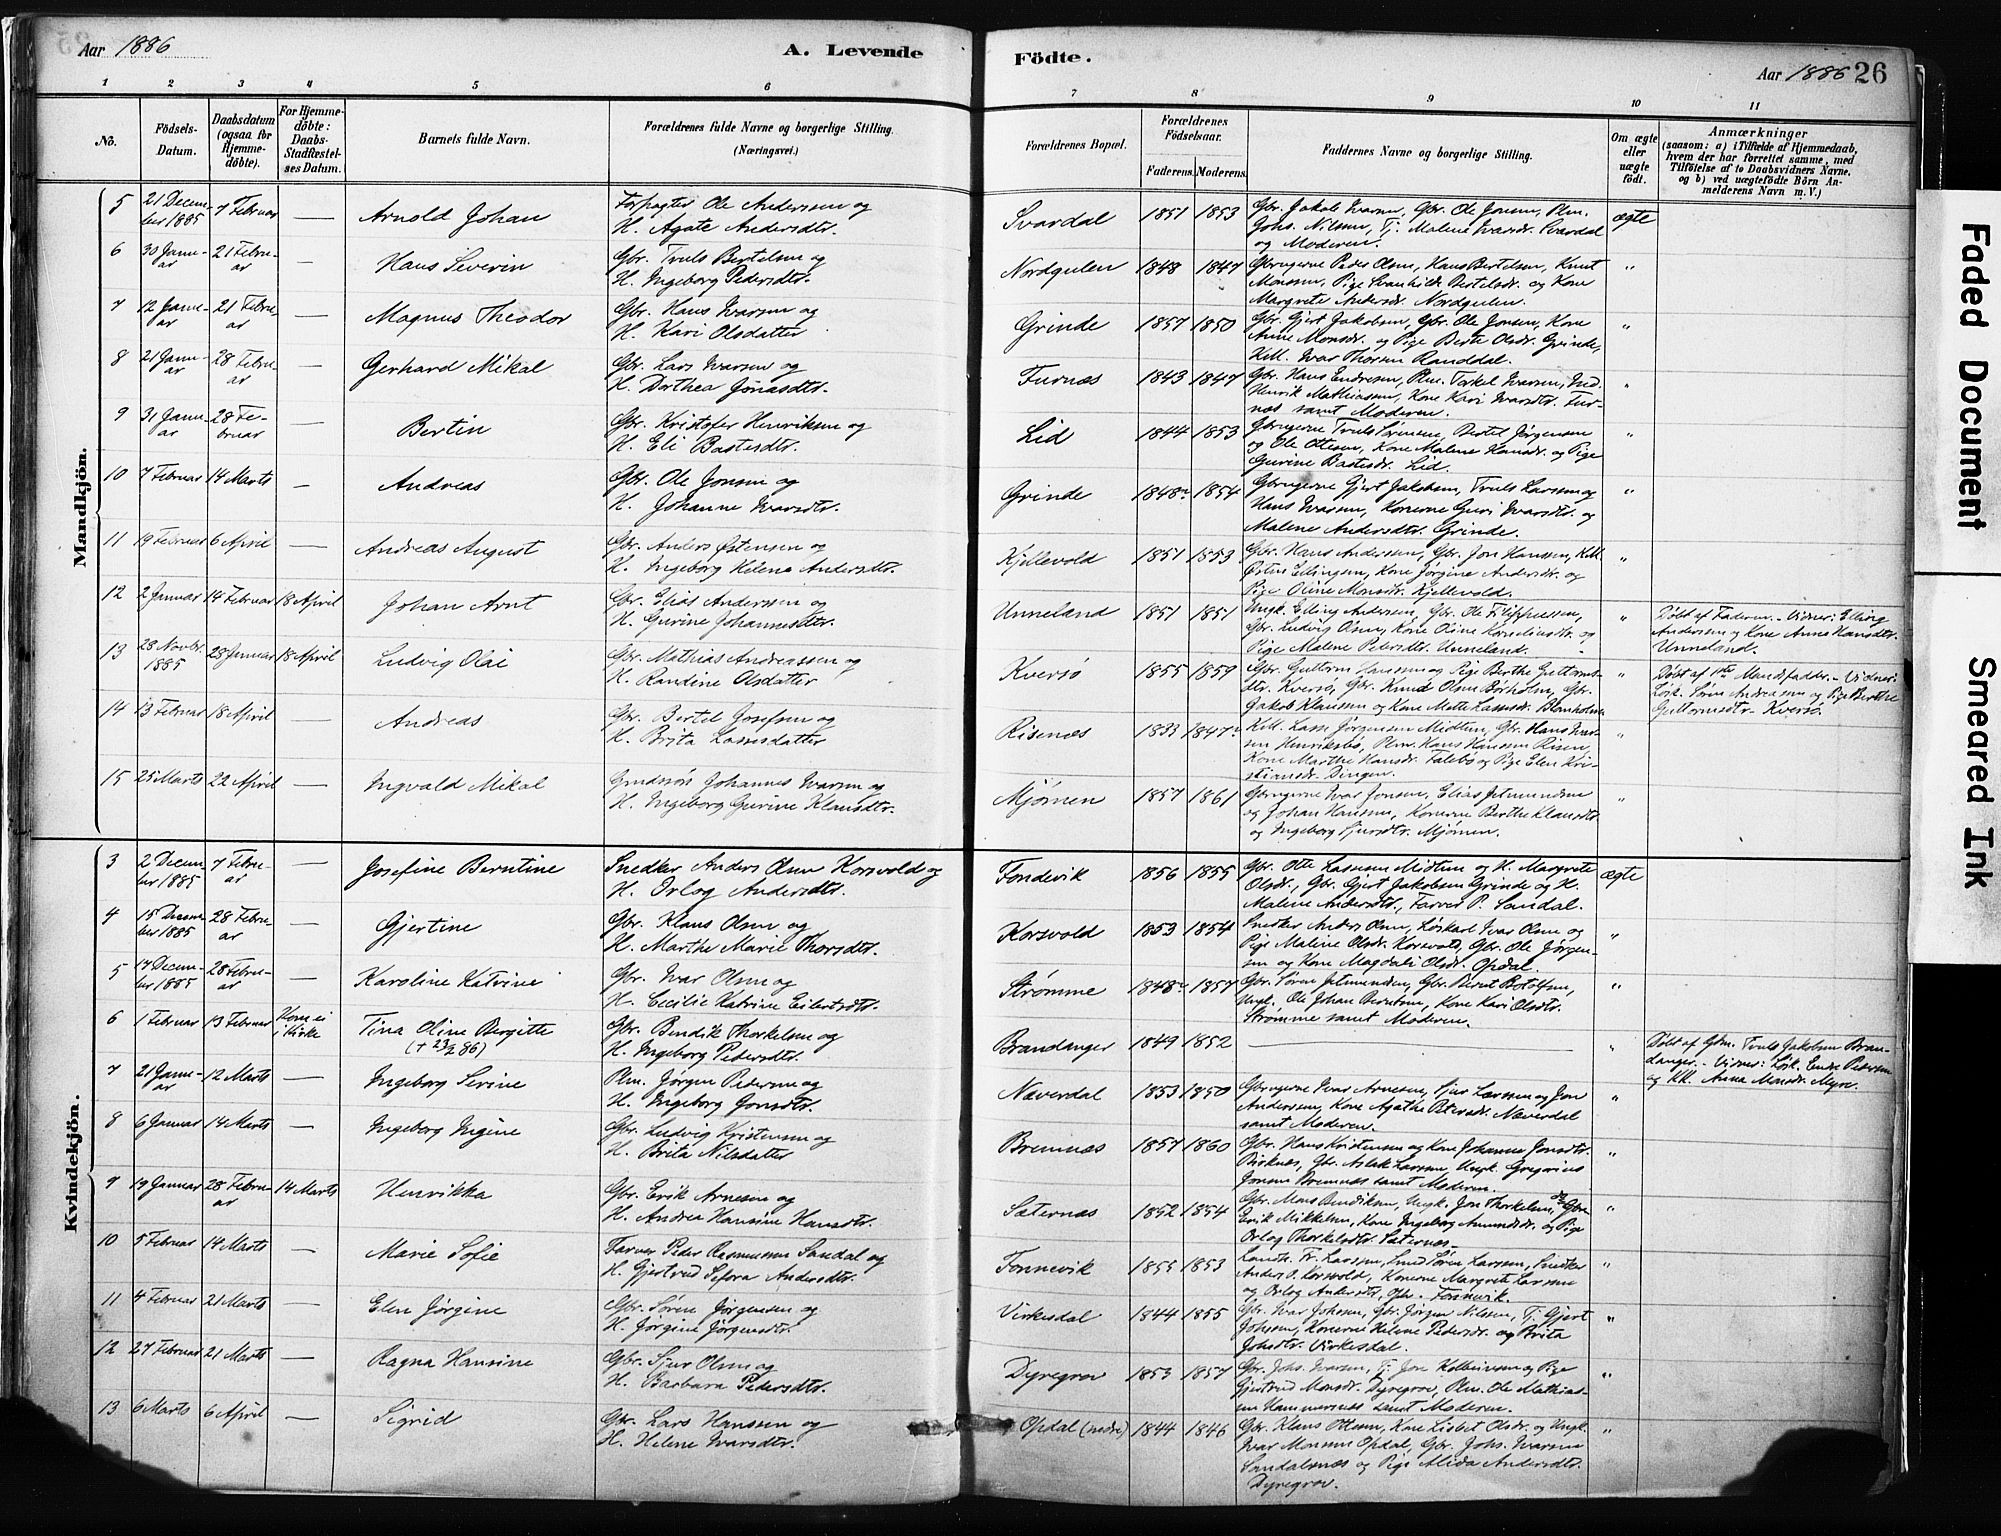 Aar 1886
A. Levende Födte.
Aar 1886 26
1 2 3 4 5 6 7 8 9 10 11
No.
Födsels-Datum.
Daabsdatum (ogsaa for Hjemmedöbte).
For Hjemmedöbte: Daabs-Stadfæstelses Datum.
Barnets fulde Navn.
Forældrenes fulde Navne og borgerlige Stilling. (Næringsvei.)
Forældrenes Bopæl.
Forældrenes Födselsaar.
Faderens. Moderens.
Faddernes Navne og borgerlige Stilling.
Om ægte eller uægte födt.
Anmærkninger
(saasom: a) i Tilfælde af Hjemmedaab, hvem der har forrettet samme, med Tilföielse af to Daabsvidners Navne, og b) ved uægtefödte Börn Anmelderens Navn m. V.)
Mandkjön.
5 21 December 1885 7 Februar — Arnold Johan Forpagter Ole Anderssen og H. Agate Andersdtr. Svardal 1851 1853 Gbr. Jakob Ivarsen, Gbr. Ole Jonsen, Plm. Johs. Nilsen, Tj. Malene Ivarsdr. Svardal og Moderen. ægte
6 30 Januar 21 Februar — Hans Severin Gbr. Truls Bertelsen og H. Ingeborg Pedersdtr. Nordgulen 1848 1847 Gbrugerne Peder Olsen, Hans Bertelsen, Knut Monssen, Pige Svanhilde Bertelsdr. og Kone Margrete Andersdr. Nordgulen. "
7 12 Januar 21 Februar — Magnus Theodor Gbr. Hans Ivarsen og H. Kari Olsdatter Grinde 1857 1850 Gbr. Gjert Jakobsen, Gbr. Ole Jonsen, Kone Anne Monsdr. og Pige Berte Olsdr. Grinde, Kell. Ivar Thorsen Randdal. "
8 21 Januar 28 Februar — Gerhard Mikal Gbr. Lars Ivarsen og H. Dorthea Jonasdtr. Furnæs 1843 1847 Gbr. Hans Endresen, Plm. Torkel Ivarsen, Ind. Henrik Mathiassen, Kone Kari Ivarsdtr. Furnæs samt Moderen. "
9 31 Januar 28 Februar — Bertin Gbr. Kristofer Henriksen og H. Eli Bastesdtr. Lid 1844 1853 Gbrugerne Truls Sørensen, Bertel Jørgensen og Ole Ottesen, Kone Malene Hansdr. og Pige Gurine Bastesdr. Lid. "
10 7 Februar 14 Marts — Andreas Gbr. Ole Jonsen og H. Johanne Ivarsdtr. Grinde 1848 1854 Gbrugerne Gjert Jakobsen, Truls Larsen og Hans Ivarsen, Konerne Guri Ivarsdtr. og Malene Andersdtr. Grinde. "
11 19 Februar 6 April — Andreas August Gbr. Anders Østensen og H. Ingeborg Helena Andersdtr. Kjellevold 1851 1853 Gbr. Hans Anderssen, Gbr. Jon Hanssen, Kell. Østen Ellingsen, Kone Jørgine Andersdr. og Pige Oline Monsdr. Kjellevold. "
12 2 Januar 14 Februar 18 April Johan Arnt Gbr. Elias Anderssen og H. Gurine Johannesdtr. Unneland 1851 1851 Ungk. Elling Andersen, Gbr. Ole Filippussen, Gbr. Ludvig Olsen, Kone Oline Korneliusdtr. og Pige Malene Petersdtr. Unneland. " Døbt af Faderen. Vidner: Elling Andersen og Kone Anne Hansdtr. Unneland.
13 28 Novbr. 1885 28 Januar 18 April Ludvig Olai Gbr. Mathias Andreassen og H. Randine Olsdatter Kversø 1855 1859 Gbr. Guttorm Hanssen og Pige Berthe Guttormsdtr. Kversø, Gbr. Knud Olsen Børholm, Gbr. Jakob Klaussen og Kone Mette Lassesdr. " Døbt af Vidner: Løsk. Søren Andreassen og Pige Berthe Guttormsdtr. Kversø.
14 13 Februar 18 April — Andreas Gbr. Bertel Josefsen og H. Brita Lassesdatter Risenæs 1833 1847 Kell. Lasse Jørgensen Midtun, Gbr. Hans Ivarsen Henriksbø, Plm. Hans Hanssen Risen, Kone Marthe Hansdr. og Pige Elen Kristiansdr. Dingen. "
15 25 Marts 22 April — Ingvald Mikal Grudssøn Johannes Ivarsen og H. Ingeborg Gurine Klausdtr. Mjømen 1857 1861 Gbrugerne Ivar Jonsen, Elias Jetmundsen og Johan Hanssen, Konerne Berthe Klausdtr. og Ingeborg Sjursdtr. Mjømen. "
Kvindekjön.
3 2 December 1885 7 Februar — Josefine Berntine Snedker Anders Olsen Korsvold og H. Orlog Andersdtr. Fondevik 1856 1855 Gbr. Otte Lassesen Midtun og H. Margrete Olsdr., Gbr. Gjert Jakobsen Grinde og H. Malene Andersdtr., Farver P. Sandal. ægte
4 15 December 1885 28 Februar — Gjertine Gbr. Klaus Olsen og H. Marthe Marie Thorsdtr. Korsvold 1853 1854 Snedker Anders Olsen, Løskarl Ivar Olsen og Pige Maline Olsdr. Korsvold, Gbr. Ole Jørgensen og Kone Magdali Olsdr. Opdal. "
5 14 December 1885 28 Februar — Karoline Katrine Gbr. Ivar Olsen og H. Cecilie Katrine Eilertsdtr. Strømme 1848 1857 Gbr. Søren Jetmundsen, Gbr. Bernt Botolfsen, Ungk. Ole Johan Berntsen, Kone Kari Olsdtr. Strømme samt Moderen. "
6 1 Februar 13 Februar Kom ei i Kirke Tina Oline Bergitte (+ 23/2 86) Gbr. Bendik Thorkelsen og H. Ingeborg Pedersdtr. Brandanger 1849 1852 — " Døbt af Gbm. Truls Jakobsen Brandanger. Vidner: Løsk. Endre Petersen og KK. Anna Monsdr. Myre.
7 21 Januar 12 Marts — Ingeborg Serine Plm. Jørgen Pedersen og H. Ingeborg Jonsdtr. Næverdal 1853 1850 Gbrugerne Ivar Arnesen, Sjur Larssen og Jon Anderssen, Kone Agathe Petersdr. Næverdal samt Moderen. "
8 6 Januar 14 Marts — Ingeborg Ingine Gbr. Ludvig Kristensen og H. Brita Nilsdatter Bremnæs 1857 1860 Gbr. Hans Kristensen og Kone Johanne Jonsdtr. Birknæs, Gbr. Aslak Larssen, Ungk. Gregorius Jonsen Bremnæs samt Moderen. "
9 19 Januar 28 Februar 14 Marts Henrikka Gbr. Erik Arnesen og H. Andrea Hansine Hansdtr. Sæternæs 1852 1854 Gbr. Mons Bendiksen, Ungk. Jon Thorkelsen, Gbr. Erik Mikkelsen, Kone Ingeborg Amundsdr. og Pige Orlog Thorkelsdtr. Sæternæs. "
10 5 Februar 14 Marts — Marie Sofie Farver Peder Rasmussen Sandal og H. Gjertrud Sefora Andersdtr. Fonnevik 1855 1853 Landh. Fr. Larssen, Smed Søren Larssen, Snedker Anders O. Korsvold, Konerne Margrete Larssen og Orlog Andersdtr. Fonnevik. "
11 4 Februar 21 Marts — Elen Jørgine Gbr. Søren Jørgensen og H. Jørgine Jørgensdtr. Virkesdal 1844 1855 Gbr. Ivar Johssen, Gbr. Jørgen Nilssen, Tj. Gjert Johssen, Konerne Helene Pedersdr. og Brita Johsdtr. Virkesdal. "
12 27 Februar 21 Marts — Ragna Hansine Gbr. Sjur Olsen og H. Barbara Pedersdtr. Dyregrov 1853 1857 Gbr. Johs. Ivarsen, Tj. Jon Kolbeinsen og Pige Gjertrud Monsdr. Dyregrov, Plm. Ole Mathiassen Hammersnes samt Moderen. "
13 6 Marts 6 April — Sigrid Gbr. Lars Hanssen og H. Helene Ivarsdtr. Opdal (nedre) 1844 1846 Gbr. Klaus Ottesen, Kone Lisbet Olsdr. og Ungk. Ivar Monsen Opdal, Gbr. Johs. Ivarsen Sandalsnæs og Pige Alida Andersdtr. Dyregrov. "
Faded Document
Smeared Ink